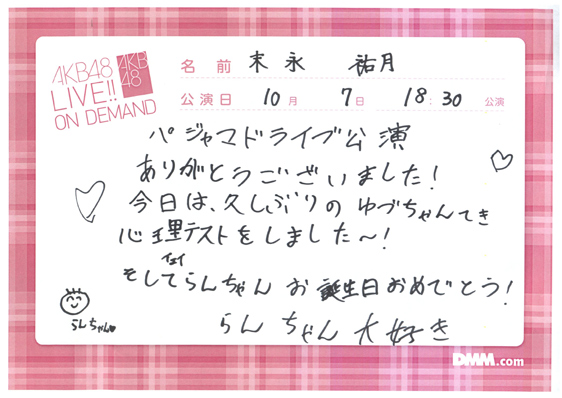 AKB48
LIVE!!
ON DEMAND
AKB
48
名前 末永 祐月
公演日 10月 7日 18:30 公演
パジャマドライブ公演
ありがとうございました!
今日は、久しぶりのゆづちゃんてき
心理テストをしました〜!
そしてらんちゃんお誕生日おめでとう!
らんちゃん大好き
らんちゃん
DMM.com